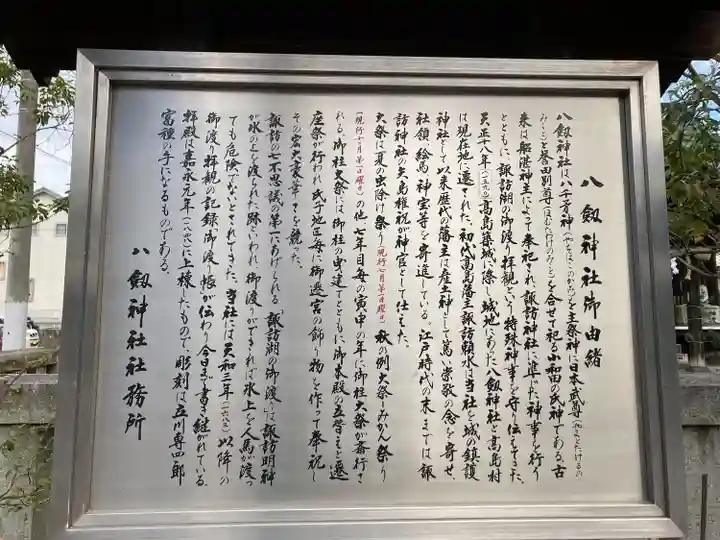 八劔神社御由緒
八劔神社は八千矛神（やちほこのかみ）を主祭神に日本武尊（やまとたけるの
みこと）誉田別尊（ほんだわけのみこと）を合せて祀る小和田の氏神である。古
来は船渡神主によって奉祀され、諏訪神社に準じた神事を行う
とともに、諏訪湖の御渡り拝観という特殊神事を守り伝えてきた。
天正十八年（一五九〇）高島築城に際し、城地にあった八劔神社と高島村
は現在地に遷された。初代高島藩主諏訪頼水は当社を城の鎮護
神社として以来歴代の藩主は産土神として篤い崇敬の念を寄せ、
社領、絵馬、神宝等を寄進している。江戸時代の末までは諏
訪神社の矢島権祝が神官として仕えた。
大祭は夏の虫除け祭り（現行七月第一日曜日）秋の例大祭・みかん祭り
（現行十一月第一日曜日）の他七年目毎の寅申の年に御柱大祭が斎行さ
れる。御柱大祭には御柱の曳建てとともに御本殿の立替えと遷
座祭が行われ、氏子地区毎に御遷宮の飾り物を作って奉祝し
その宏大豪華さを競った。
諏訪の七不思議の第一にあげられる「諏訪湖の御渡り」は諏訪明神
が氷の上を渡られた跡といわれ、御渡りができれば氷上を人馬が渡っ
ても危険でないとされてきた。当社には天和三年（一六八三）以降の
御渡り拝観の記録「御渡り帳」が伝わり今日まで書き継がれている。
拝殿は嘉永元年（一八四八）に上棟したもので、彫刻は立川専四郎
富種の手になるものである。
八劔神社社務所